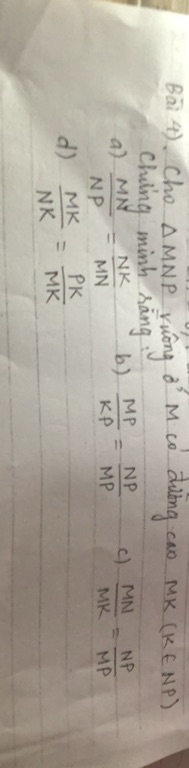 Bài 4). Cho △MNP vuông ở M có đường cao MK (K ∈ NP)
Chứng minh rằng:
a) MN/NP = NK/MN b) MP/KP = NP/MP c) MN/MK = NP/MP
d) MK/NK = PK/MK